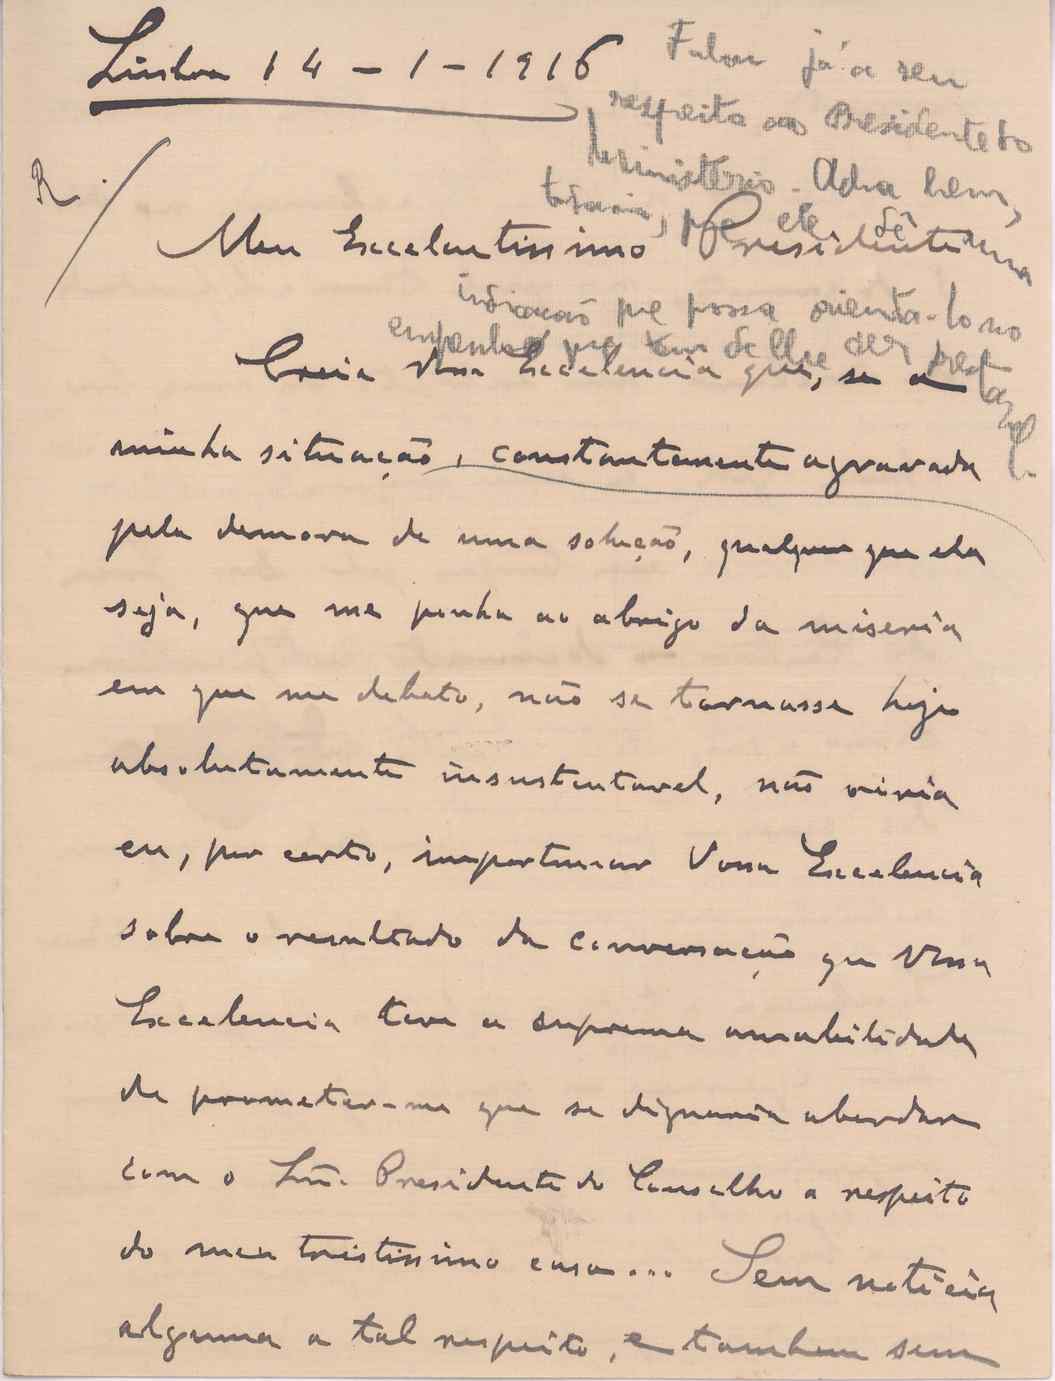 Lisboa 14-1-1916
Falou já a seu
respeito ao Presidente do
Ministério. Acha bem,
todavia, que ele dê uma
indicação que possa orienta-lo no
empenho que tem de lhe ser prestavel.
R.
Meu Excelentissimo Presidente
Creia Vossa Excelencia que, se a
minha situação, constantemente agravada
pela demora de uma solução, qualquer que ela
seja, que me ponha ao abrigo da miseria
em que me debato, não se tornasse hoje
absolutamente insustentavel, não viria
eu, por certo, importunar Vossa Excelencia
sobre o resultado da conversação que Vossa
Excelencia teve a suprema amabilidade
de prometer-me que se dignaria abordar
com o Snr. Presidente do Conselho a respeito
do meu tristissimo caso... Sem noticia
alguma a tal respeito, e tambem sem